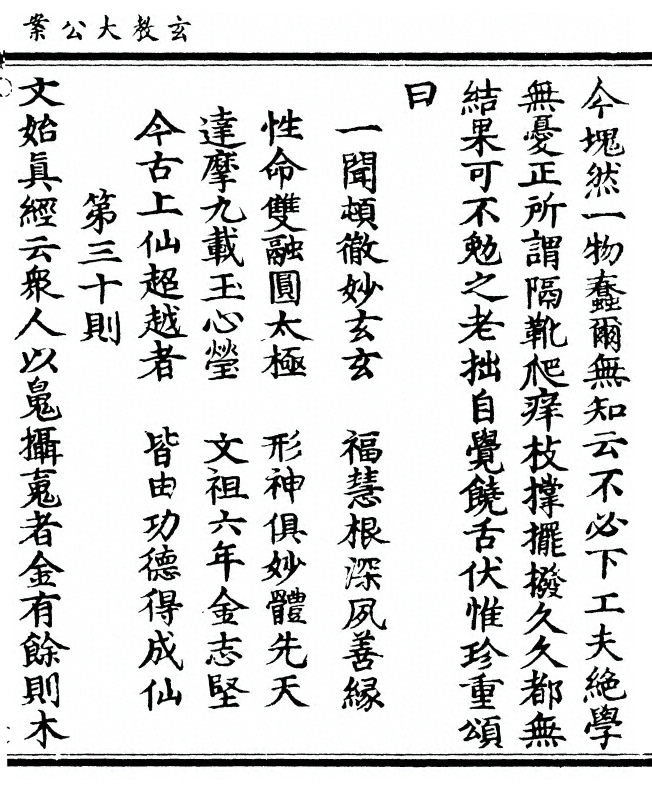 玄教大公案
今塊然一物蠢爾無知云不必下工夫絶學
無憂正所謂隔靴爬痒枝撑擺撥久久都無
結果可不勉之老拙自覺饒舌伏惟珍重頌
曰
一聞頓徹妙玄玄　福慧根深夙善緣
性命雙融圓太極　形神俱妙體先天
達摩九載玉心瑩　文祖六年金志堅
今古上仙超越者　皆由功德得成仙
第三十則
文始眞經云衆人以鬼攝䰟者金有餘則木